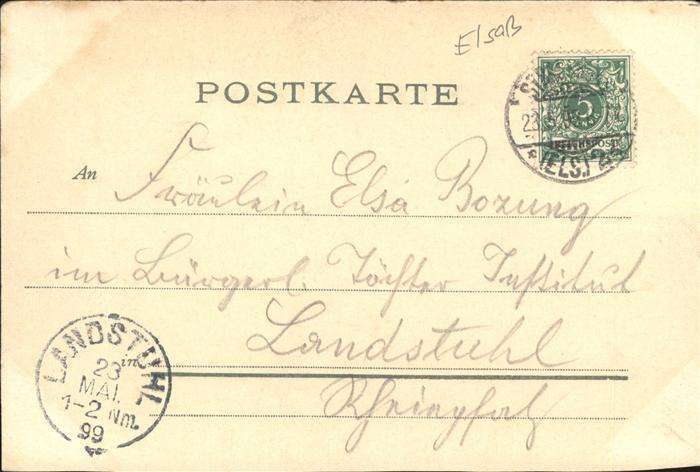 Elsaß
POSTKARTE
5
REICHSPOST
(ELS.)
An Fräulein Elsa Bozung
im Bürgerl. Töchter Institut
Landstuhl
in
Rheinpfalz
LANDSTUHL
23
MAI.
1-2 Nm.
99